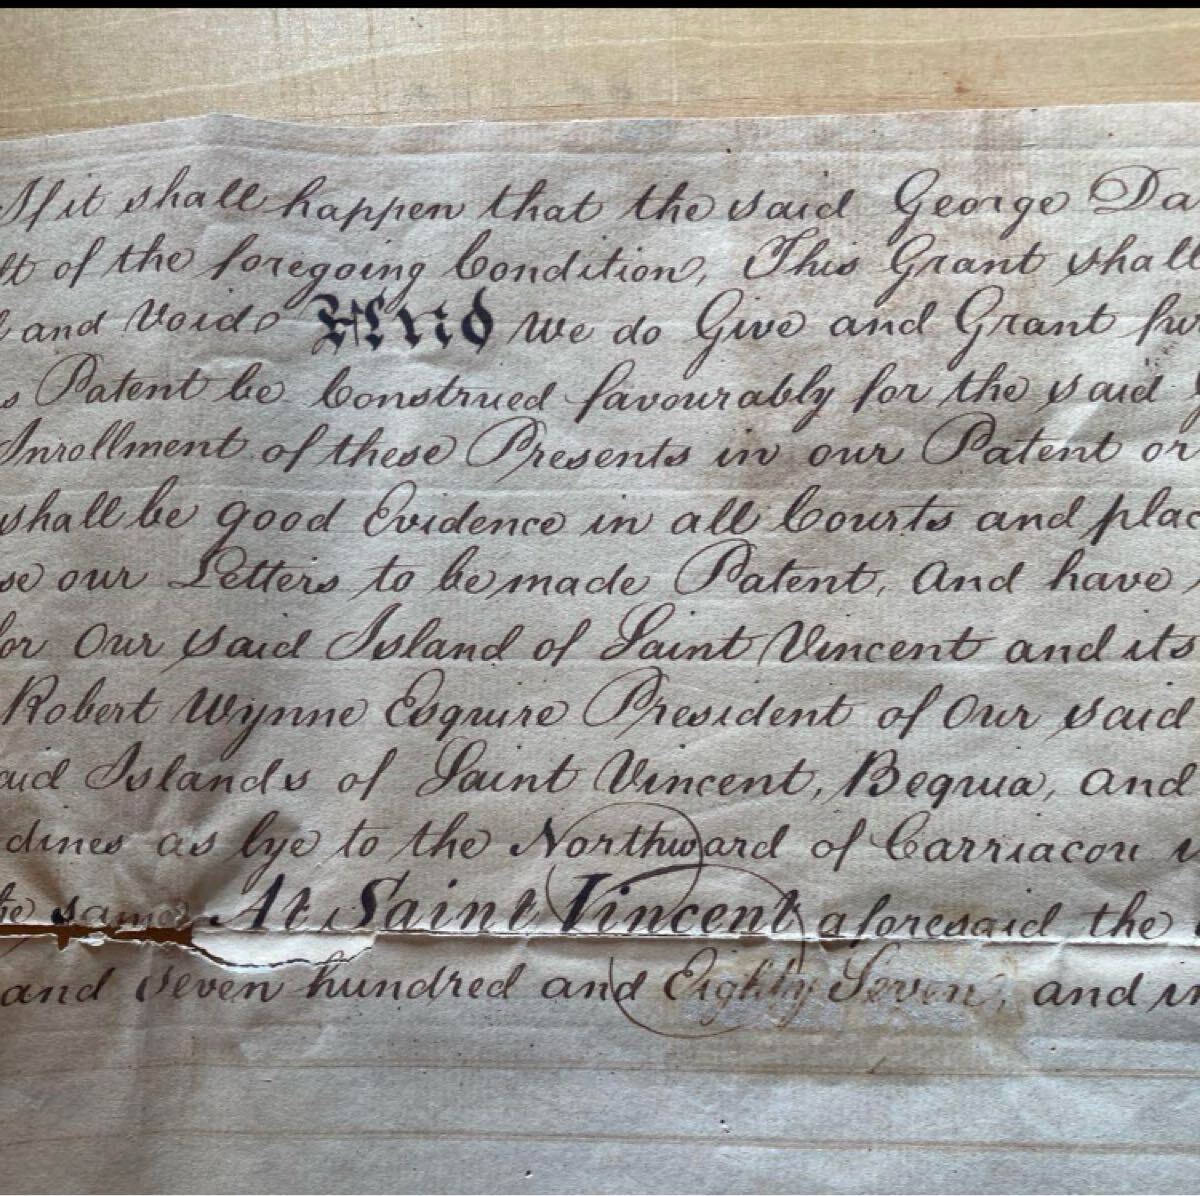 If it shall happen that the said George Da
lt of the foregoing Condition, This Grant shall
l and Void And We do Give and Grant fur
s Patent be Construed favourably for the said
Inrollment of these Presents in our Patent or
shall be good Evidence in all Courts and plac
se our Letters to be made Patent, And have
for Our said Island of Saint Vincent and its
Robert Wynne Esquire President of Our said
aid Islands of Saint Vincent, Bequia, and
dines as lye to the Northward of Carriacou
the same At Saint Vincent aforesaid the
and seven hundred and Eighty Seven, and in